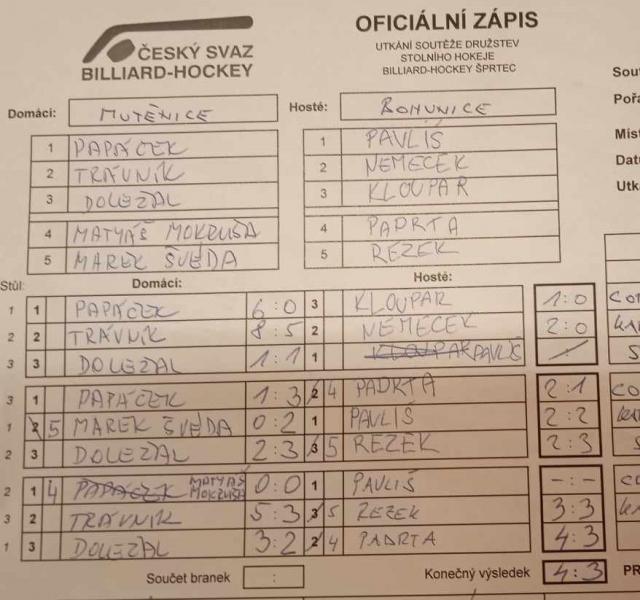 ČESKÝ SVAZ
BILLIARD-HOCKEY
OFICIÁLNÍ ZÁPIS
UTKÁNÍ SOUTĚŽE DRUŽSTEV
STOLNÍHO HOKEJE
BILLIARD-HOCKEY ŠPRTEC
Domácí: MUTĚNICE Hosté: BOHUNICE
1 PAPÁČEK 1 PAVLIŠ
2 TRÁVNÍK 2 NEMEČEK
3 DOLEŽAL 3 KLOUPAR
4 MATYÁŠ MOKRUŠA 4 PADRTA
5 MAREK ŠVEDA 5 REZEK
Stůl: Domácí: Hosté:
1 1 PAPÁČEK 6:0 3 KLOUPAR 1:0
2 2 TRÁVNÍK 8:5 2 NEMEČEK 2:0
3 3 DOLEŽAL 1:1 1 KLOUPAR PAVLIŠ /
3 1 PAPÁČEK 1:3 2 4 PADRTA 2:1
1 2 5 MAREK ŠVEDA 0:2 1 PAVLIŠ 2:2
2 3 DOLEŽAL 2:3 3 5 REZEK 2:3
2 1 4 PAPÁČEK MATYÁŠ MOKRUŠA 0:0 1 PAVLIŠ -:-
3 2 TRÁVNÍK 5:3 3 5 REZEK 3:3
1 3 DOLEŽAL 3:2 2 4 PADRTA 4:3
Součet branek : Konečný výsledek 4:3